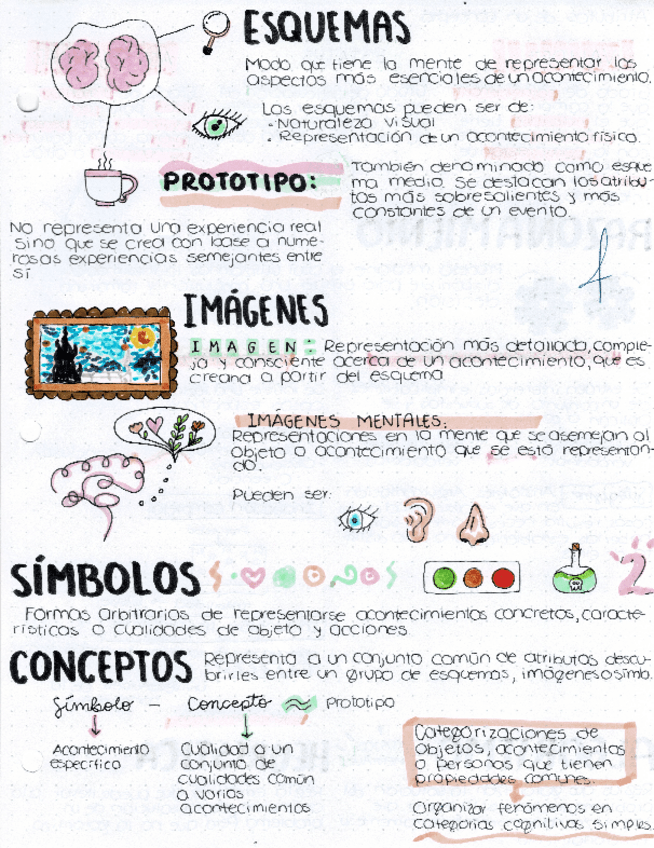 ESQUEMAS
Modo que tiene la mente de representar los
aspectos más esenciales de un acontecimiento.
Los esquemas pueden ser de:
- Naturaleza visual
• Representación de un acontecimiento físico.
PROTOTIPO:
También denominado como esque
ma medio. Se destacan los atribu-
tos más sobresalientes y más
constantes de un evento.
No representa una experiencia real
sino que se crea con base a nume-
rosas experiencias semejantes entre
sí
IMÁGENES
IMAGEN: Representación más detallada, comple-
ja y consciente acerca de un acontecimiento, que es
creada a partir del esquema
IMÁGENES MENTALES:
Representaciones en la mente que se asemejan al
objeto o acontecimiento que se está representan-
do.
Pueden ser:
SÍMBOLOS
2
Formas arbitrarias de representarse acontecimientos concretos, caracte-
rísticas o cualidades de objeto y acciones.
CONCEPTOS
Representa a un conjunto común de atributos descu-
brirles entre un grupo de esquemas, imágenes o símb.
Símbolo - Concepto ≈ Prototipo
Acontecimiento
específico
Cualidad a un
conjunto de
cualidades común
a varios
acontecimientos
Categorizaciones de
objetos, acontecimientos
o personas que tienen
propiedades comunes.
Organizar fenómenos en
categorías cognitivas simples.